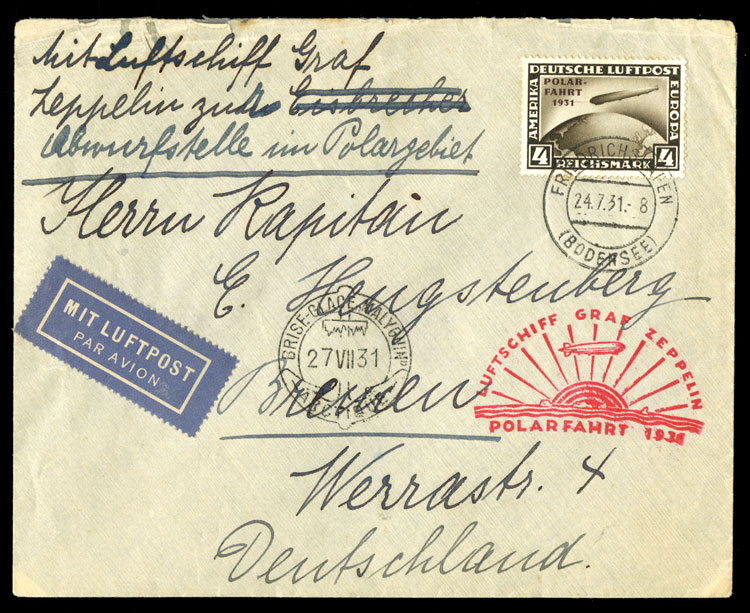 Mit Luftschiff Graf
Zeppelin zur Eisbrecher
Abwurfstelle im Polargebiet
DEUTSCHE LUFTPOST
POLAR-
FAHRT
1931
AMERIKA
EUROPA
4 REICHSMARK 4
FRIEDRICHSHAFEN
24.7.31.-8
(BODENSEE)
Herrn Kapitän
E. Hengstenberg
MIT LUFTPOST
PAR AVION
BRISE-GLACE "MALYGUIN"
27 VII 31
LUFTSCHIFF GRAF ZEPPELIN
POLARFAHRT 1931
Bremen
Werrastr. 4
Deutschland.